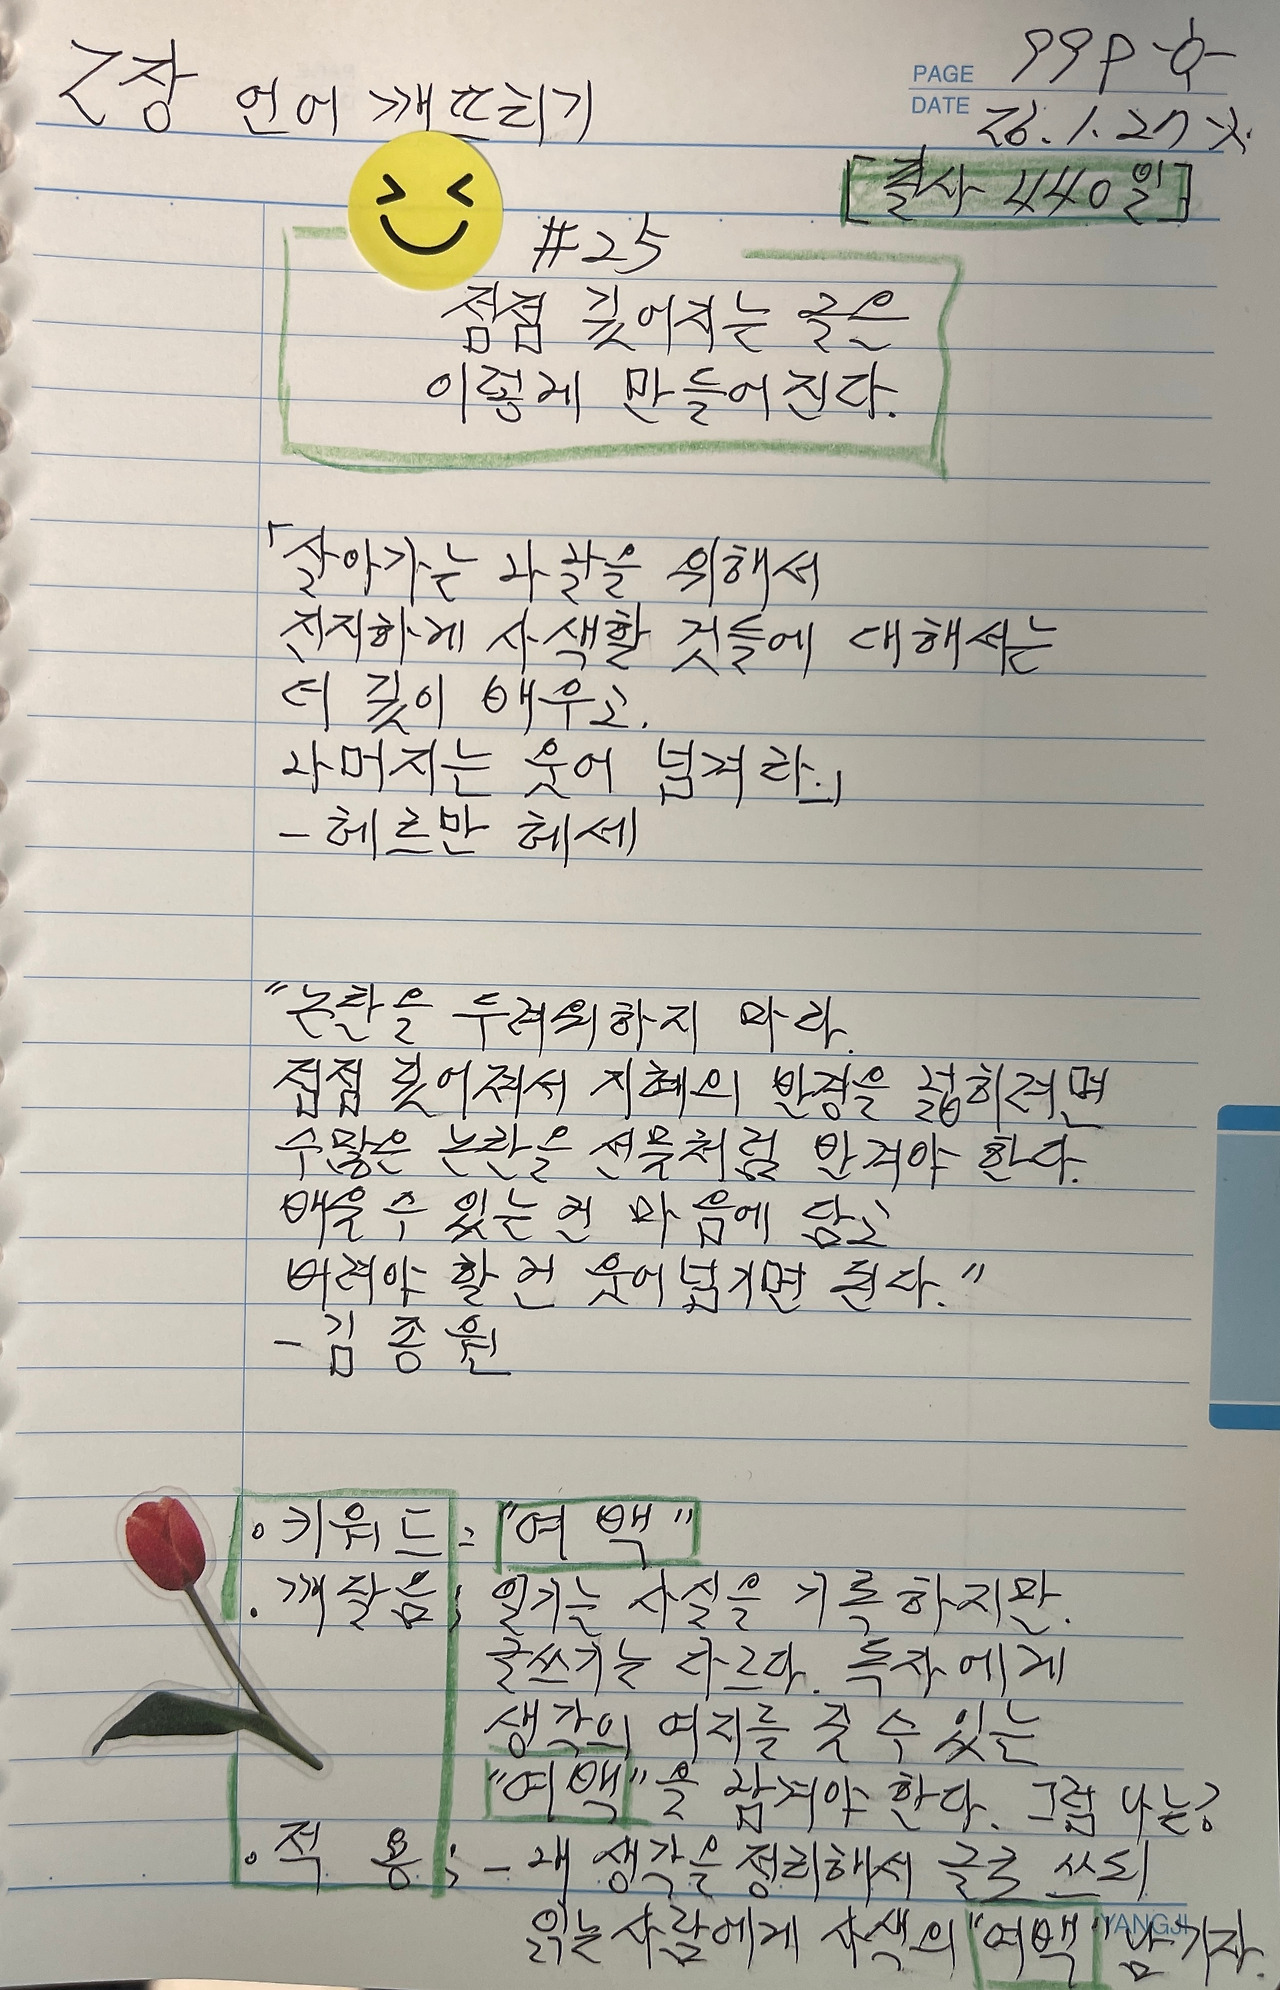 2장 언어 깨뜨리기
PAGE 99P
DATE 26.1.27 火
[필사 440일]
#25
점점 깊어지는 글은
이렇게 만들어진다.
「살아가는 나날을 위해서
진지하게 사색할 것들에 대해서는
더 깊이 배우고.
나머지는 웃어 넘겨라.」
- 헤르만 헤세
"논란을 두려워하지 마라.
점점 깊어져서 지혜의 반경을 넓히려면
수많은 논란을 선물처럼 반겨야 한다.
배울 수 있는 건 마음에 담고
버려야 할 건 웃어넘기면 된다."
- 김종원
• 키워드 : "여백"
• 깨달음 ; 일기는 사실을 기록하지만.
글쓰기는 다르다. 독자에게
생각의 여지를 줄 수 있는
"여백"을 남겨야 한다. 그럼 나는?
• 적용 ; - 내 생각을 정리해서 글로 쓰되
읽는 사람에게 사색의 "여백" 남기자.
YANGJI